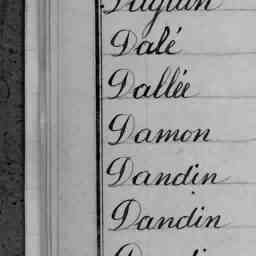 Dalé
Dallée
Damon
Dandin
Dandin